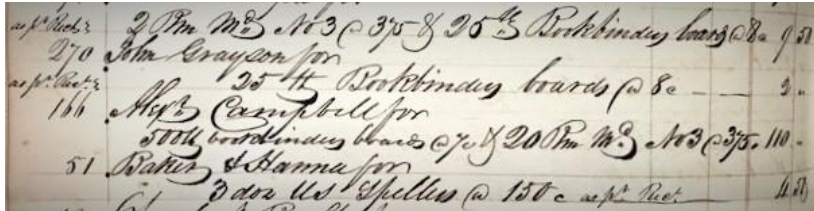 as pr Rect. 2 Rm Md. No 3 @ 375 & 25 lb Bookbinders boards @ 8c 9 50
270 John Grayson for
as pr Rect. 25 lb Bookbinders boards @ 8c 2 "
166 Alexr. Campbell for
500 lb bookbinders boards @ 7c & 20 Rm Md. No 3 @ 375. 110 "
51 Baker & Hanna for
3 doz US Spellers @ 150 c as pr Rect. 4 50